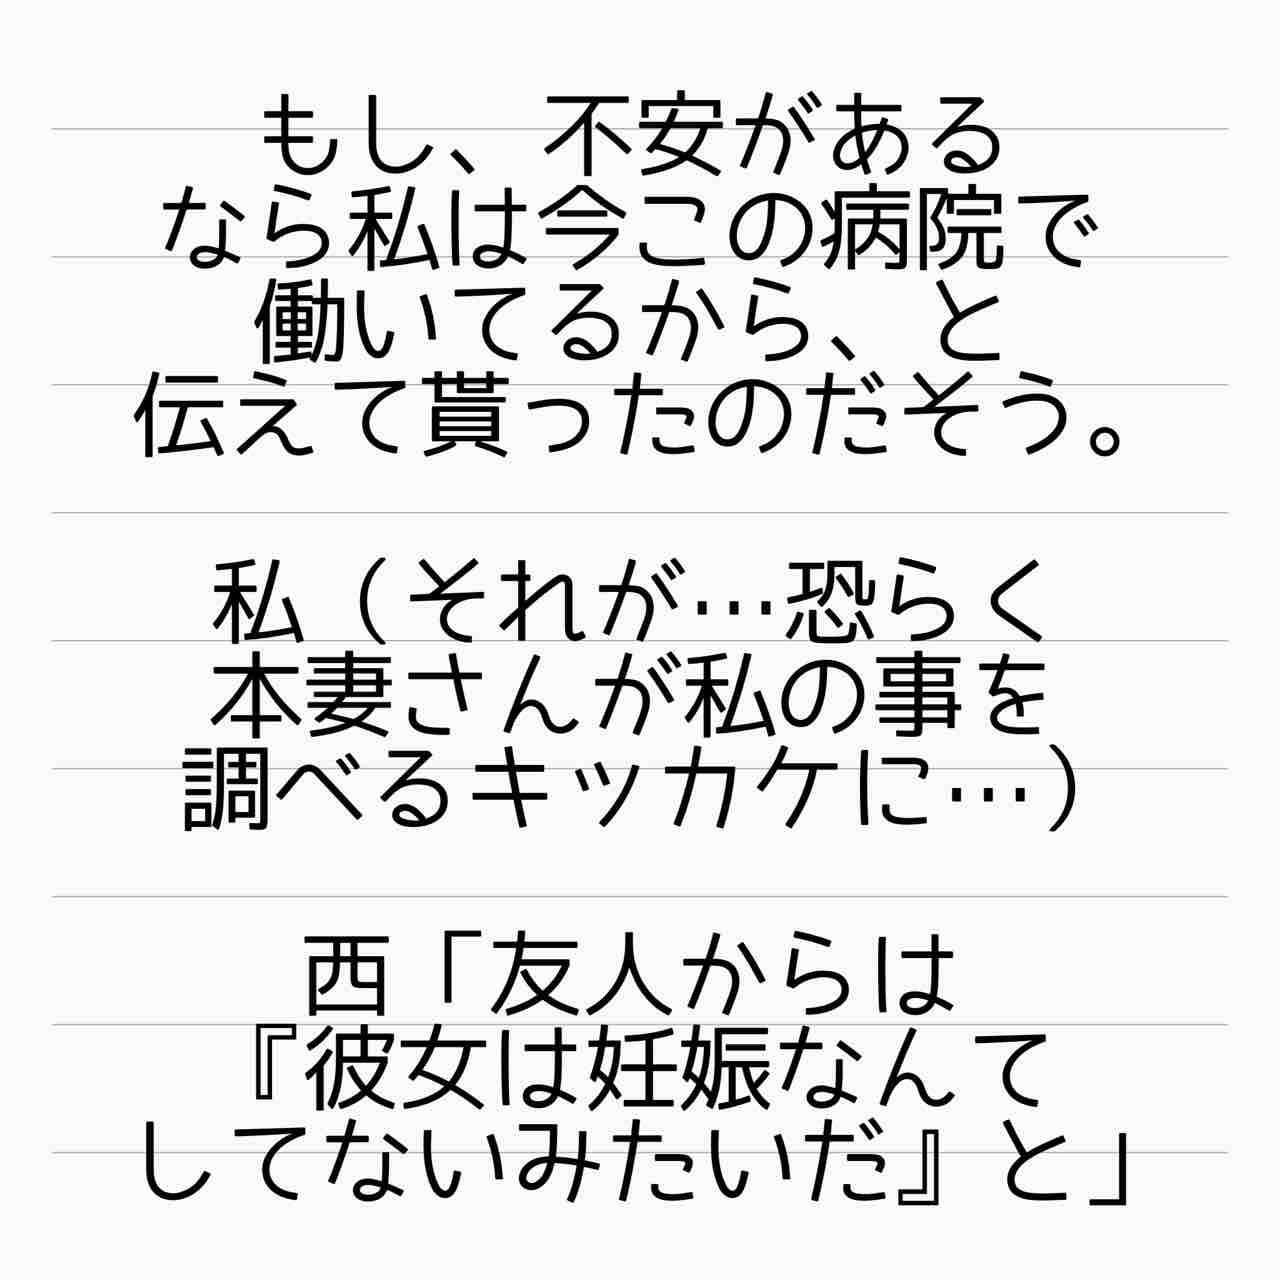 もし、不安がある
なら私は今この病院で
働いてるから、と
伝えて貰ったのだそう。
私（それが…恐らく
本妻さんが私の事を
調べるキッカケに…）
西「友人からは
『彼女は妊娠なんて
してないみたいだ』と」